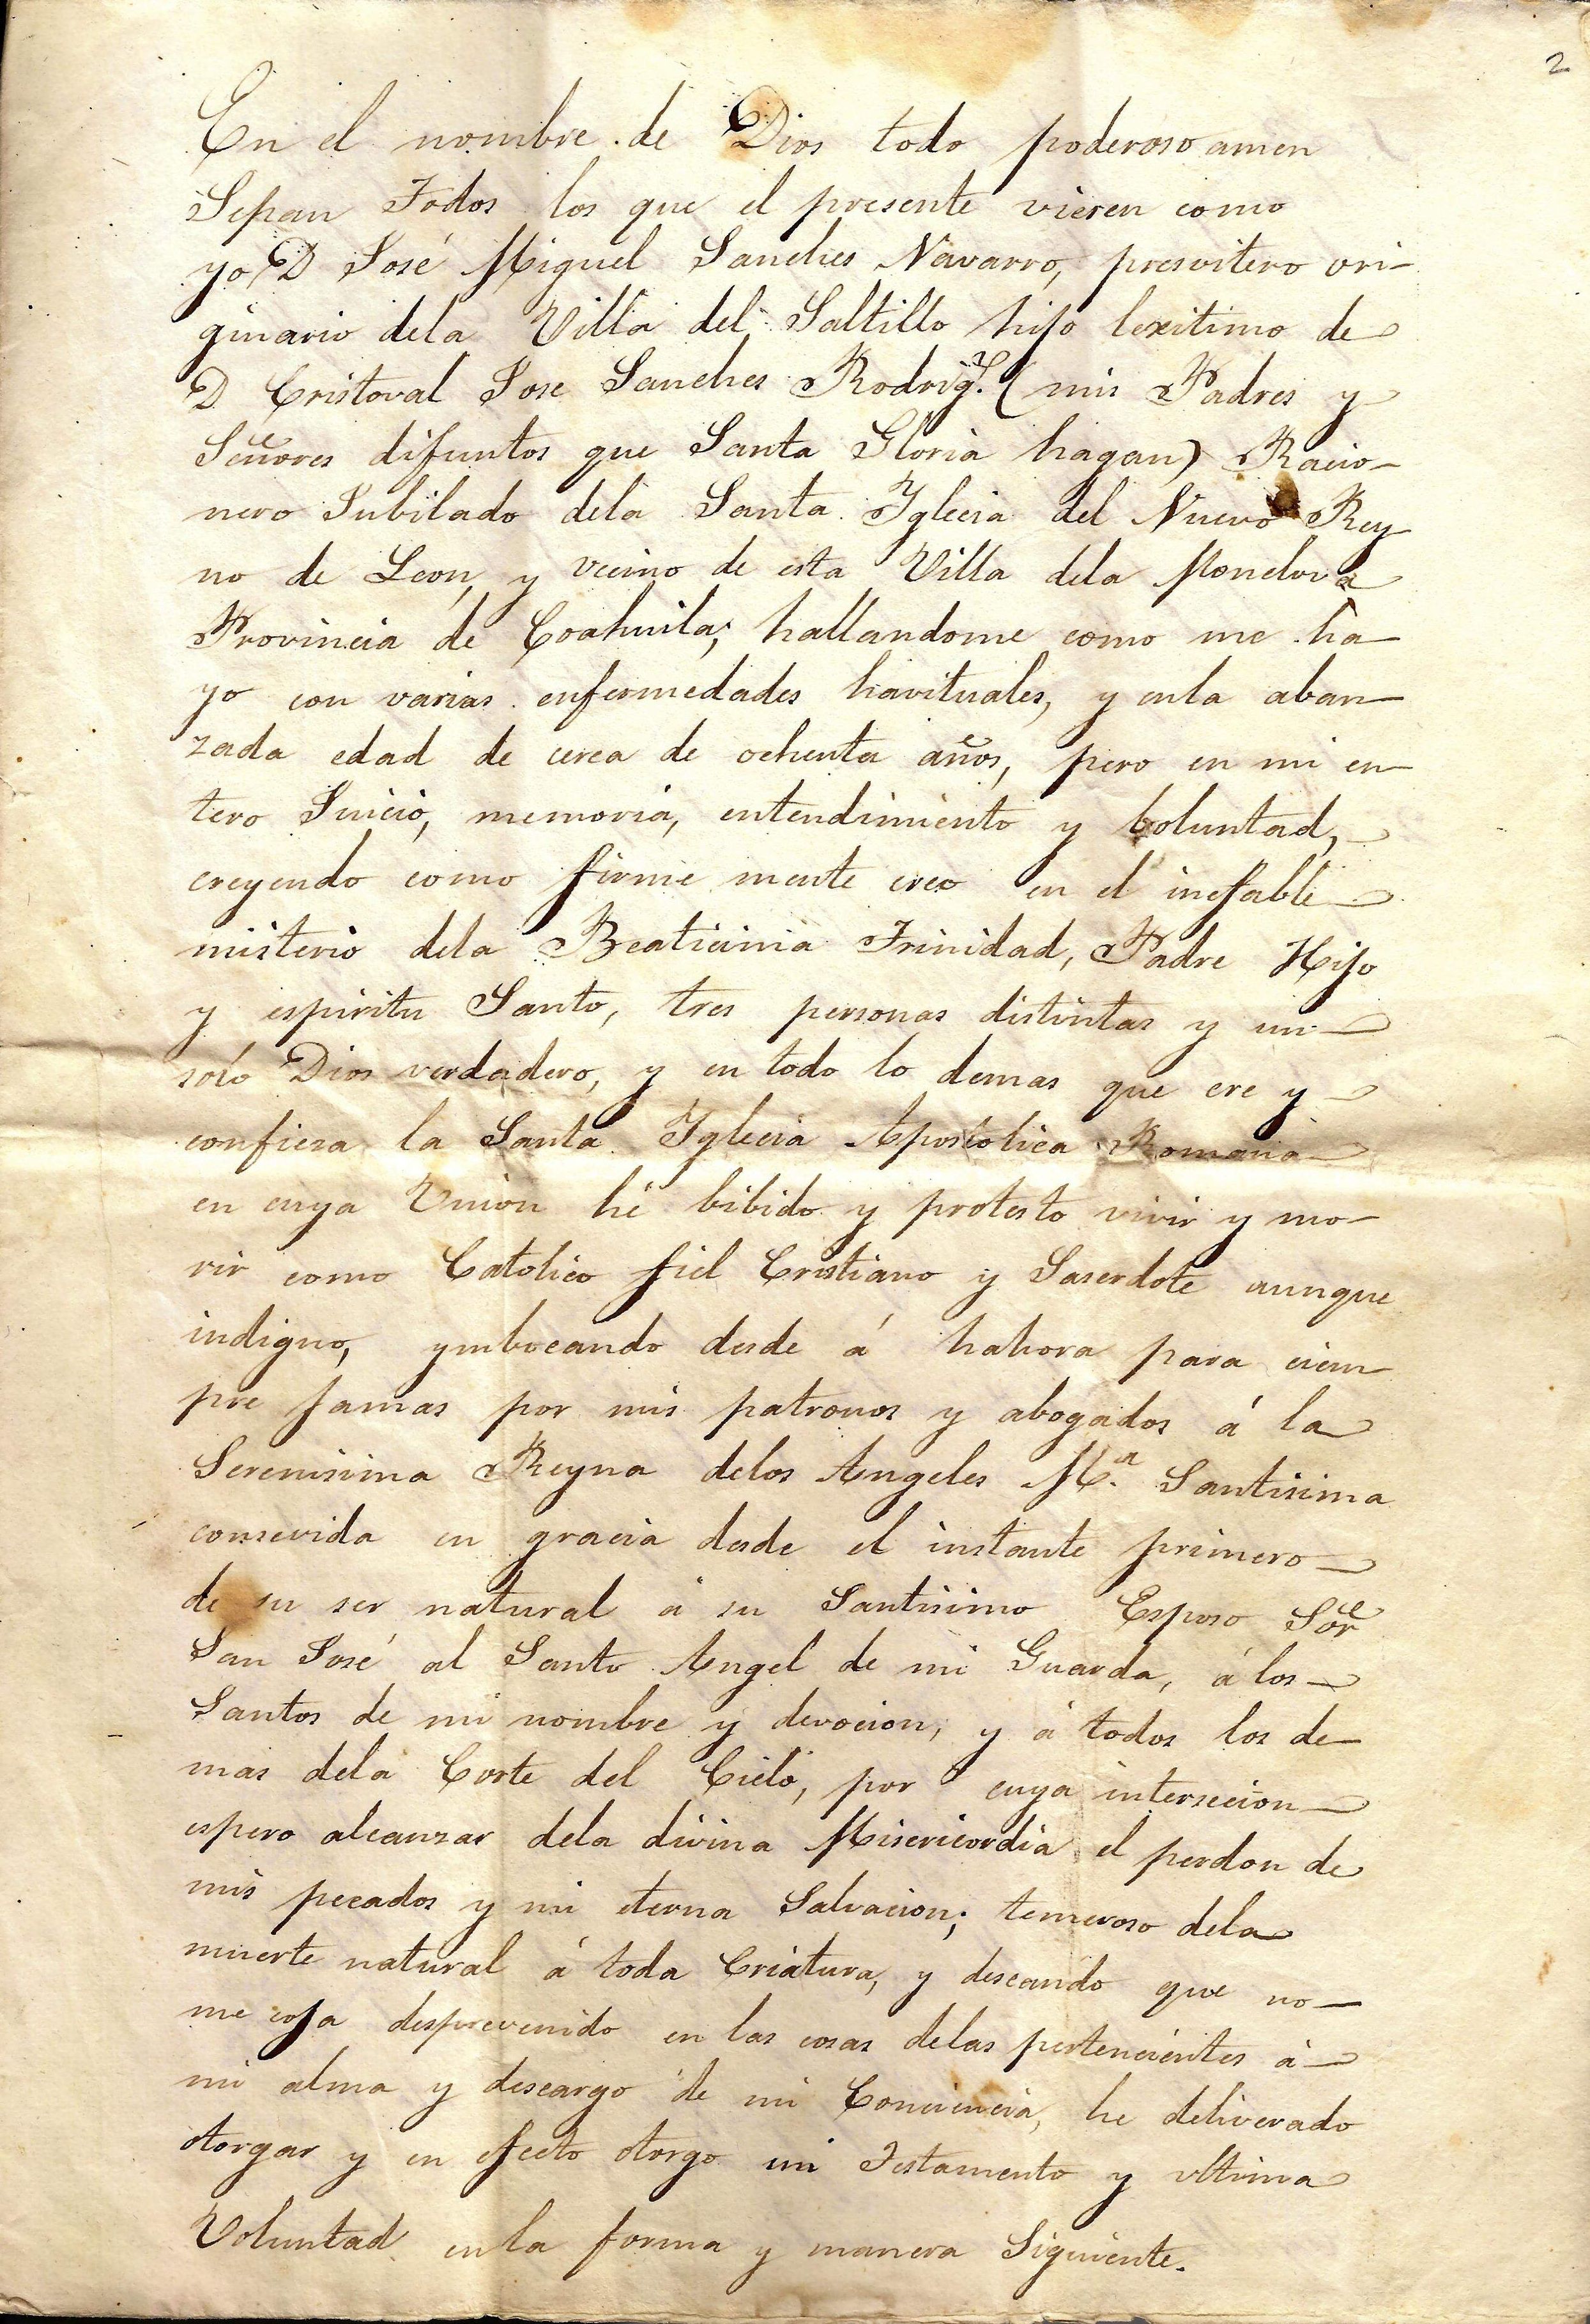 2
En el nombre de Dios todo poderoso amen
Sepan Todos los que el presente vieren como
yo D José Miguel Sanches Navarro, presvitero ori-
ginario dela Villa del Saltillo hijo lexitimo de
D. Cristoval Jose Sanches Rodrigz. (mis Padres y
Señores difuntos que Santa Gloria hagan) Racio-
nero Jubilado dela Santa Iglecia del Nuevo Rey
no de Leon, y vecino de esta Villa dela Monclova
Provincia de Coahuila; hallandome como me ha-
yo con varias enfermedades havituales, y enla aban-
zada edad de cerca de ochenta años, pero en mi en-
tero Juicio, memoria, entendimiento y boluntad,
creyendo como firme mente creo en el inefable
misterio dela Beaticima Trinidad, Padre Hijo
y espiritu Santo, tres personas distintas y un
solo Dios verdadero, y en todo lo demas que cre y
confiesa la Santa Iglecia Apostolica Romana
en cuya Union hé bibido y protesto vivir y mo-
rir como Catolico fiel Cristiano y Saserdote aunque
indigno, ymbocando desde á hahora para ciem
pre jamas por mis patronos y abogados á la
Serenisima Reyna delos Angeles Ma. Santisima
consevida en gracia desde el instante primero
de su ser natural á su Santisimo Esposo Sor
San José al Santo Angel de mi Guarda, á los
Santos de mi nombre y devocion, y á todos los de-
mas dela Corte del Cielo, por cuya intersecion
espero alcanzar dela divina Misericordia el perdon de
mis pecados y mi eterna Salvacion; temeroso dela
muerte natural á toda Criatura, y deseando que no-
me coja desprevenido en las cosas delas pertenecientes á
mi alma y descargo de mi Conciencia, he deliverado
otorgar y en efecto otorgo mi Testamento y ultima
Voluntad enla forma y manera Siguiente.